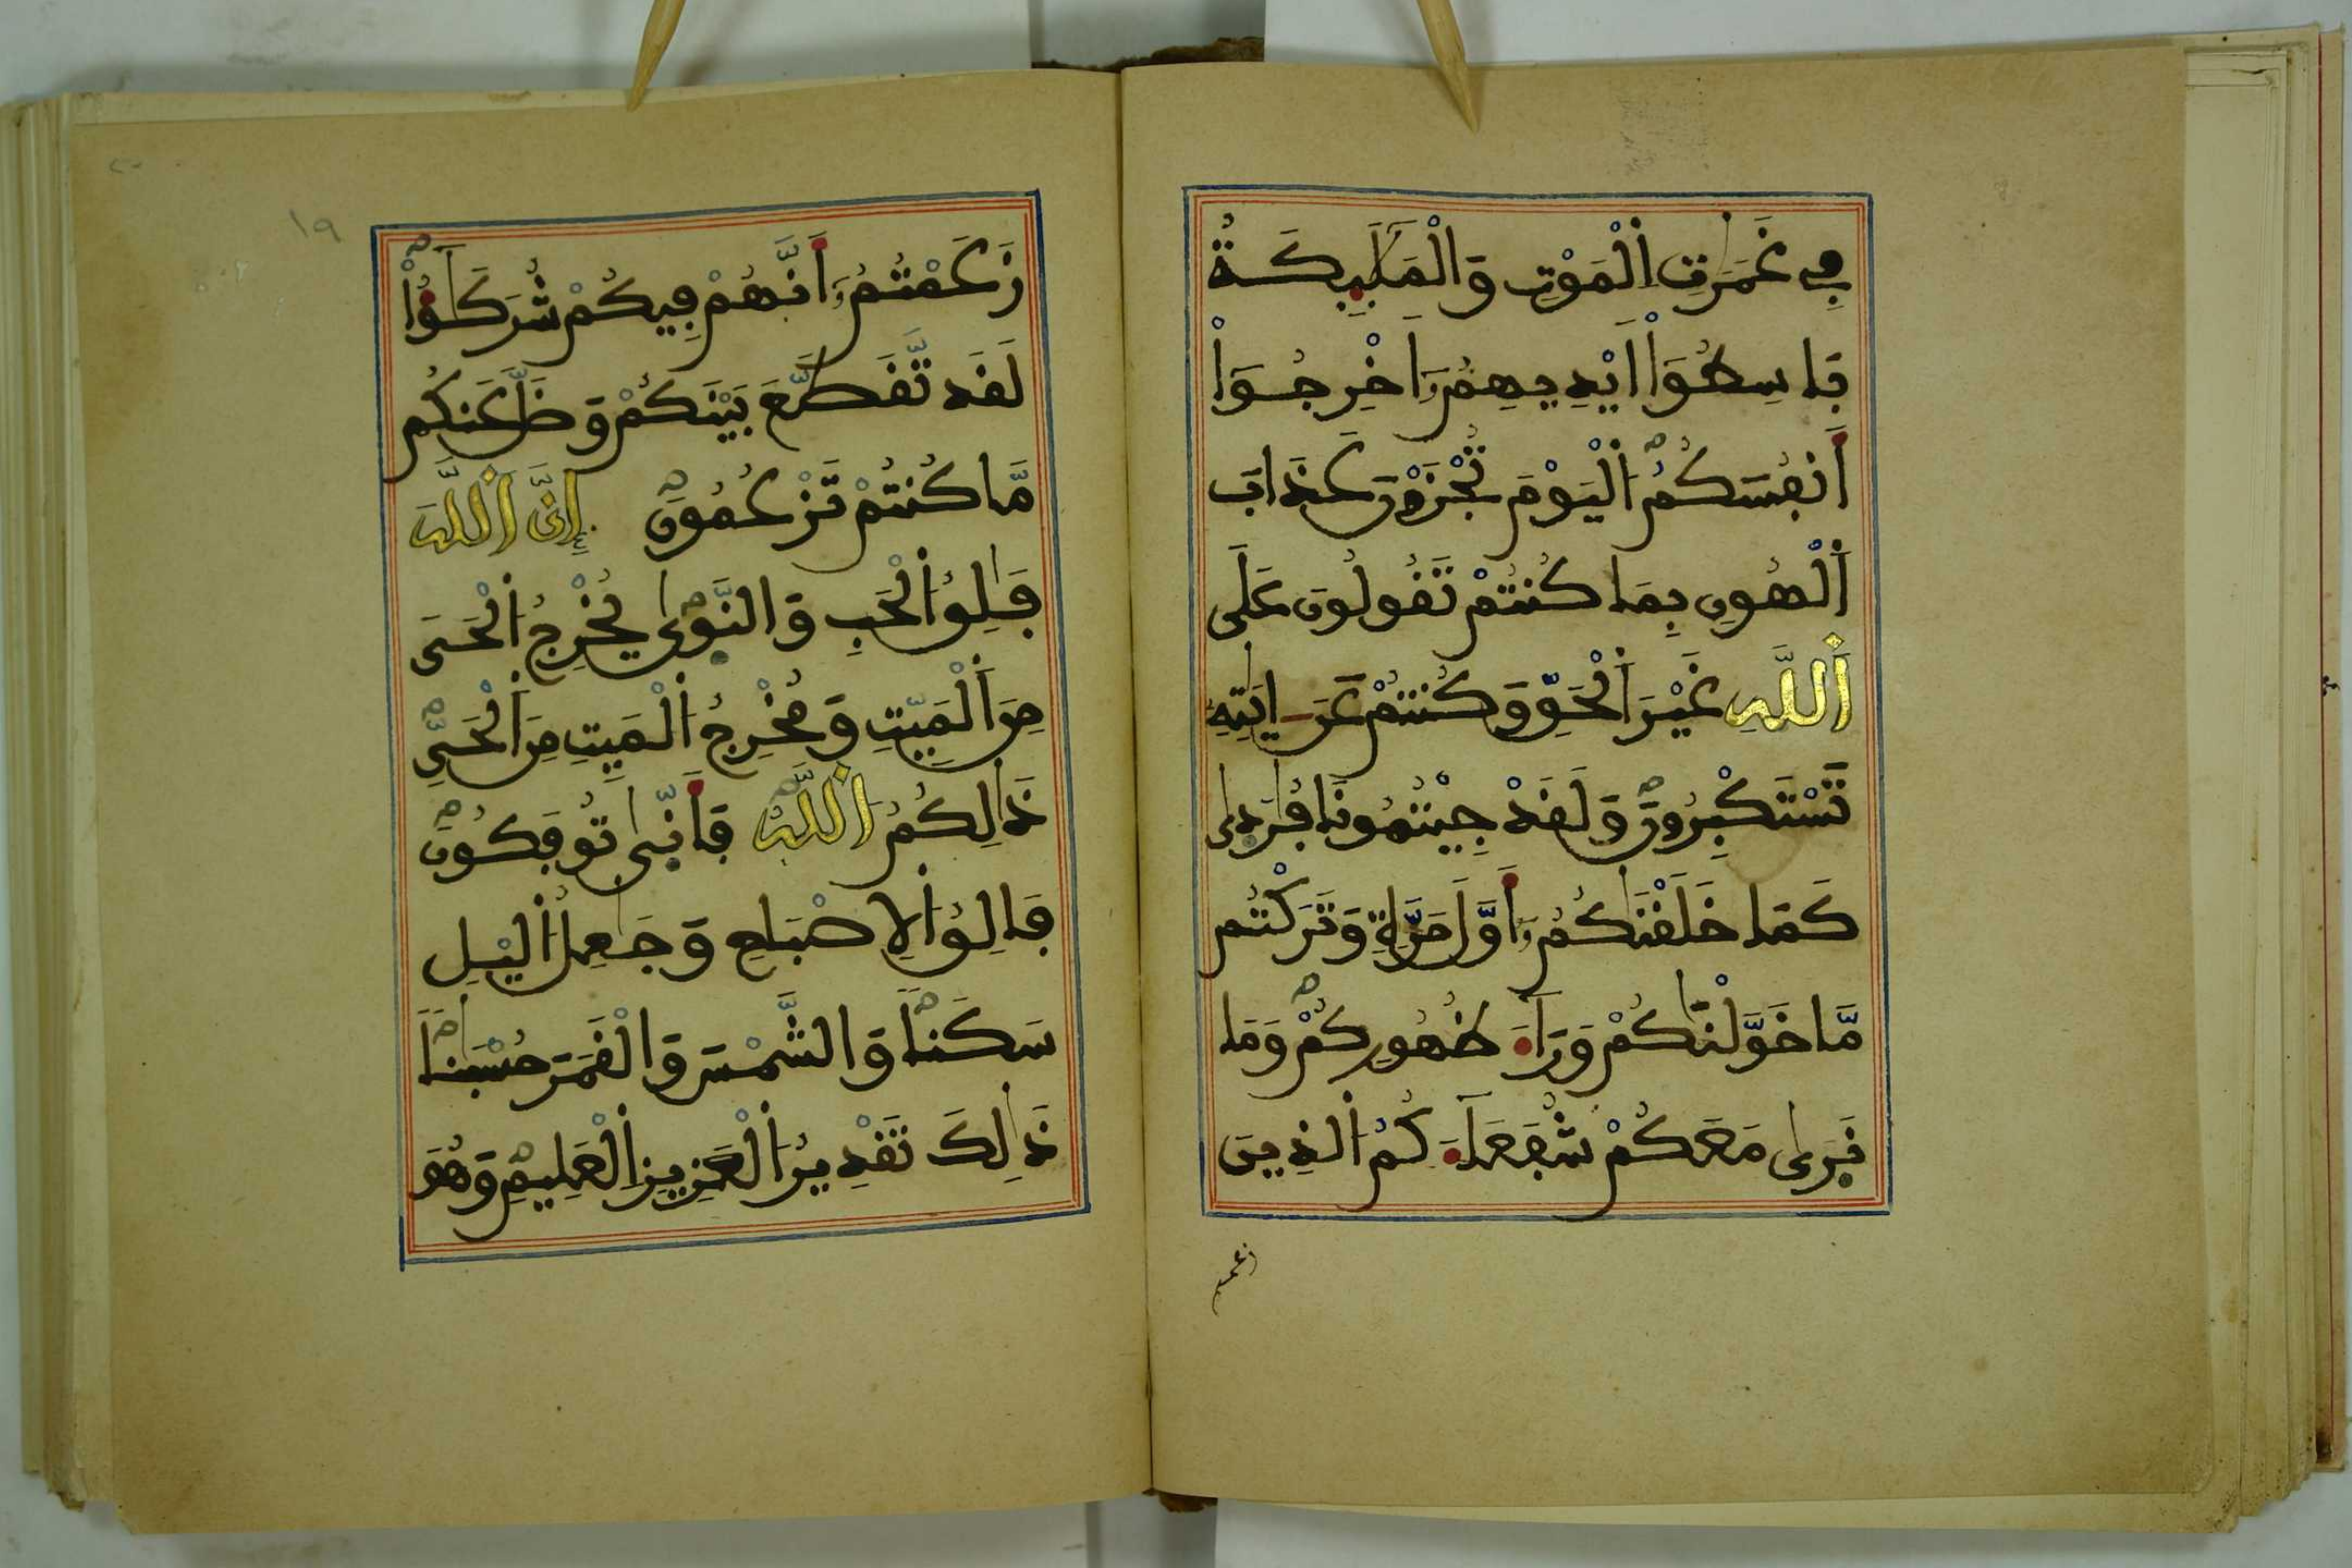 فِي غَمَرَٰتِ اِ۬لْمَوْتِ وَالْمَلَٰٓئِكَةُ
بَاسِطُوٓاْ أَيْدِيهِمُۥٓ أَخْرِجُوٓاْ
أَنفُسَكُمُ اُ۬لْيَوْمَ تُجْزَوْنَ عَذَابَ
اَ۬لْهُونِ بِمَا كُنتُمْ تَقُولُونَ عَلَى
اَ۬للَّهِ غَيْرَ اَ۬لْحَقِّ وَكُنتُمْ عَنَ ءَايَٰتِهِۦ
تَسْتَكْبِرُونَ وَلَقَدْ جِئْتُمُونَا فُرَٰدَىٰ
كَمَا خَلَقْنَٰكُمُۥٓ أَوَّلَ مَرَّةٖ وَتَرَكْتُم
مَّا خَوَّلْنَٰكُمْ وَرَآءَ ظُهُورِكُمْ وَمَا
نَرَىٰ مَعَكُمْ شُفَعَآءَكُمُ اُ۬لذِينَ
زعمتم
زَعَمْتُمُۥٓ أَنَّهُمْ فِيكُمْ شُرَكَٰٓؤُاْ
لَقَد تَّقَطَّعَ بَيْنَكُمْ وَضَلَّ عَنكُم
مَّا كُنتُمْ تَزْعُمُونَ إِنَّ اَ۬للَّهَ
فَٰلِقُ اُ۬لْحَبِّ وَالنَّوَىٰ يُخْرِجُ اُ۬لْحَيَّ
مِنَ اَ۬لْمَيِّتِ وَمُخْرِجُ اُ۬لْمَيِّتِ مِنَ اَ۬لْحَيِّ
ذَٰلِكُمُ اُ۬للَّهُ فَأَنَّىٰ تُوفَكُونَ
فَالِقُ اُ۬لِاصْبَاحِ وَجَٰعِلُ اُ۬ليْلِ
سَكَناٗ وَالشَّمْسَ وَالْقَمَرَ حُسْبَٰناٗ
ذَٰلِكَ تَقْدِيرُ اُ۬لْعَزِيزِ اِ۬لْعَلِيمِ وَهُوَ
١٩